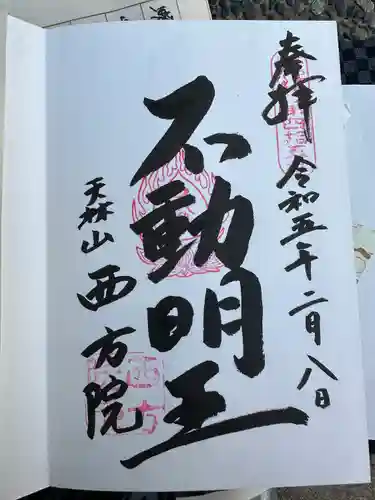 奉拝
令和五年二月八日
不動明王
天林山
西方院
西方